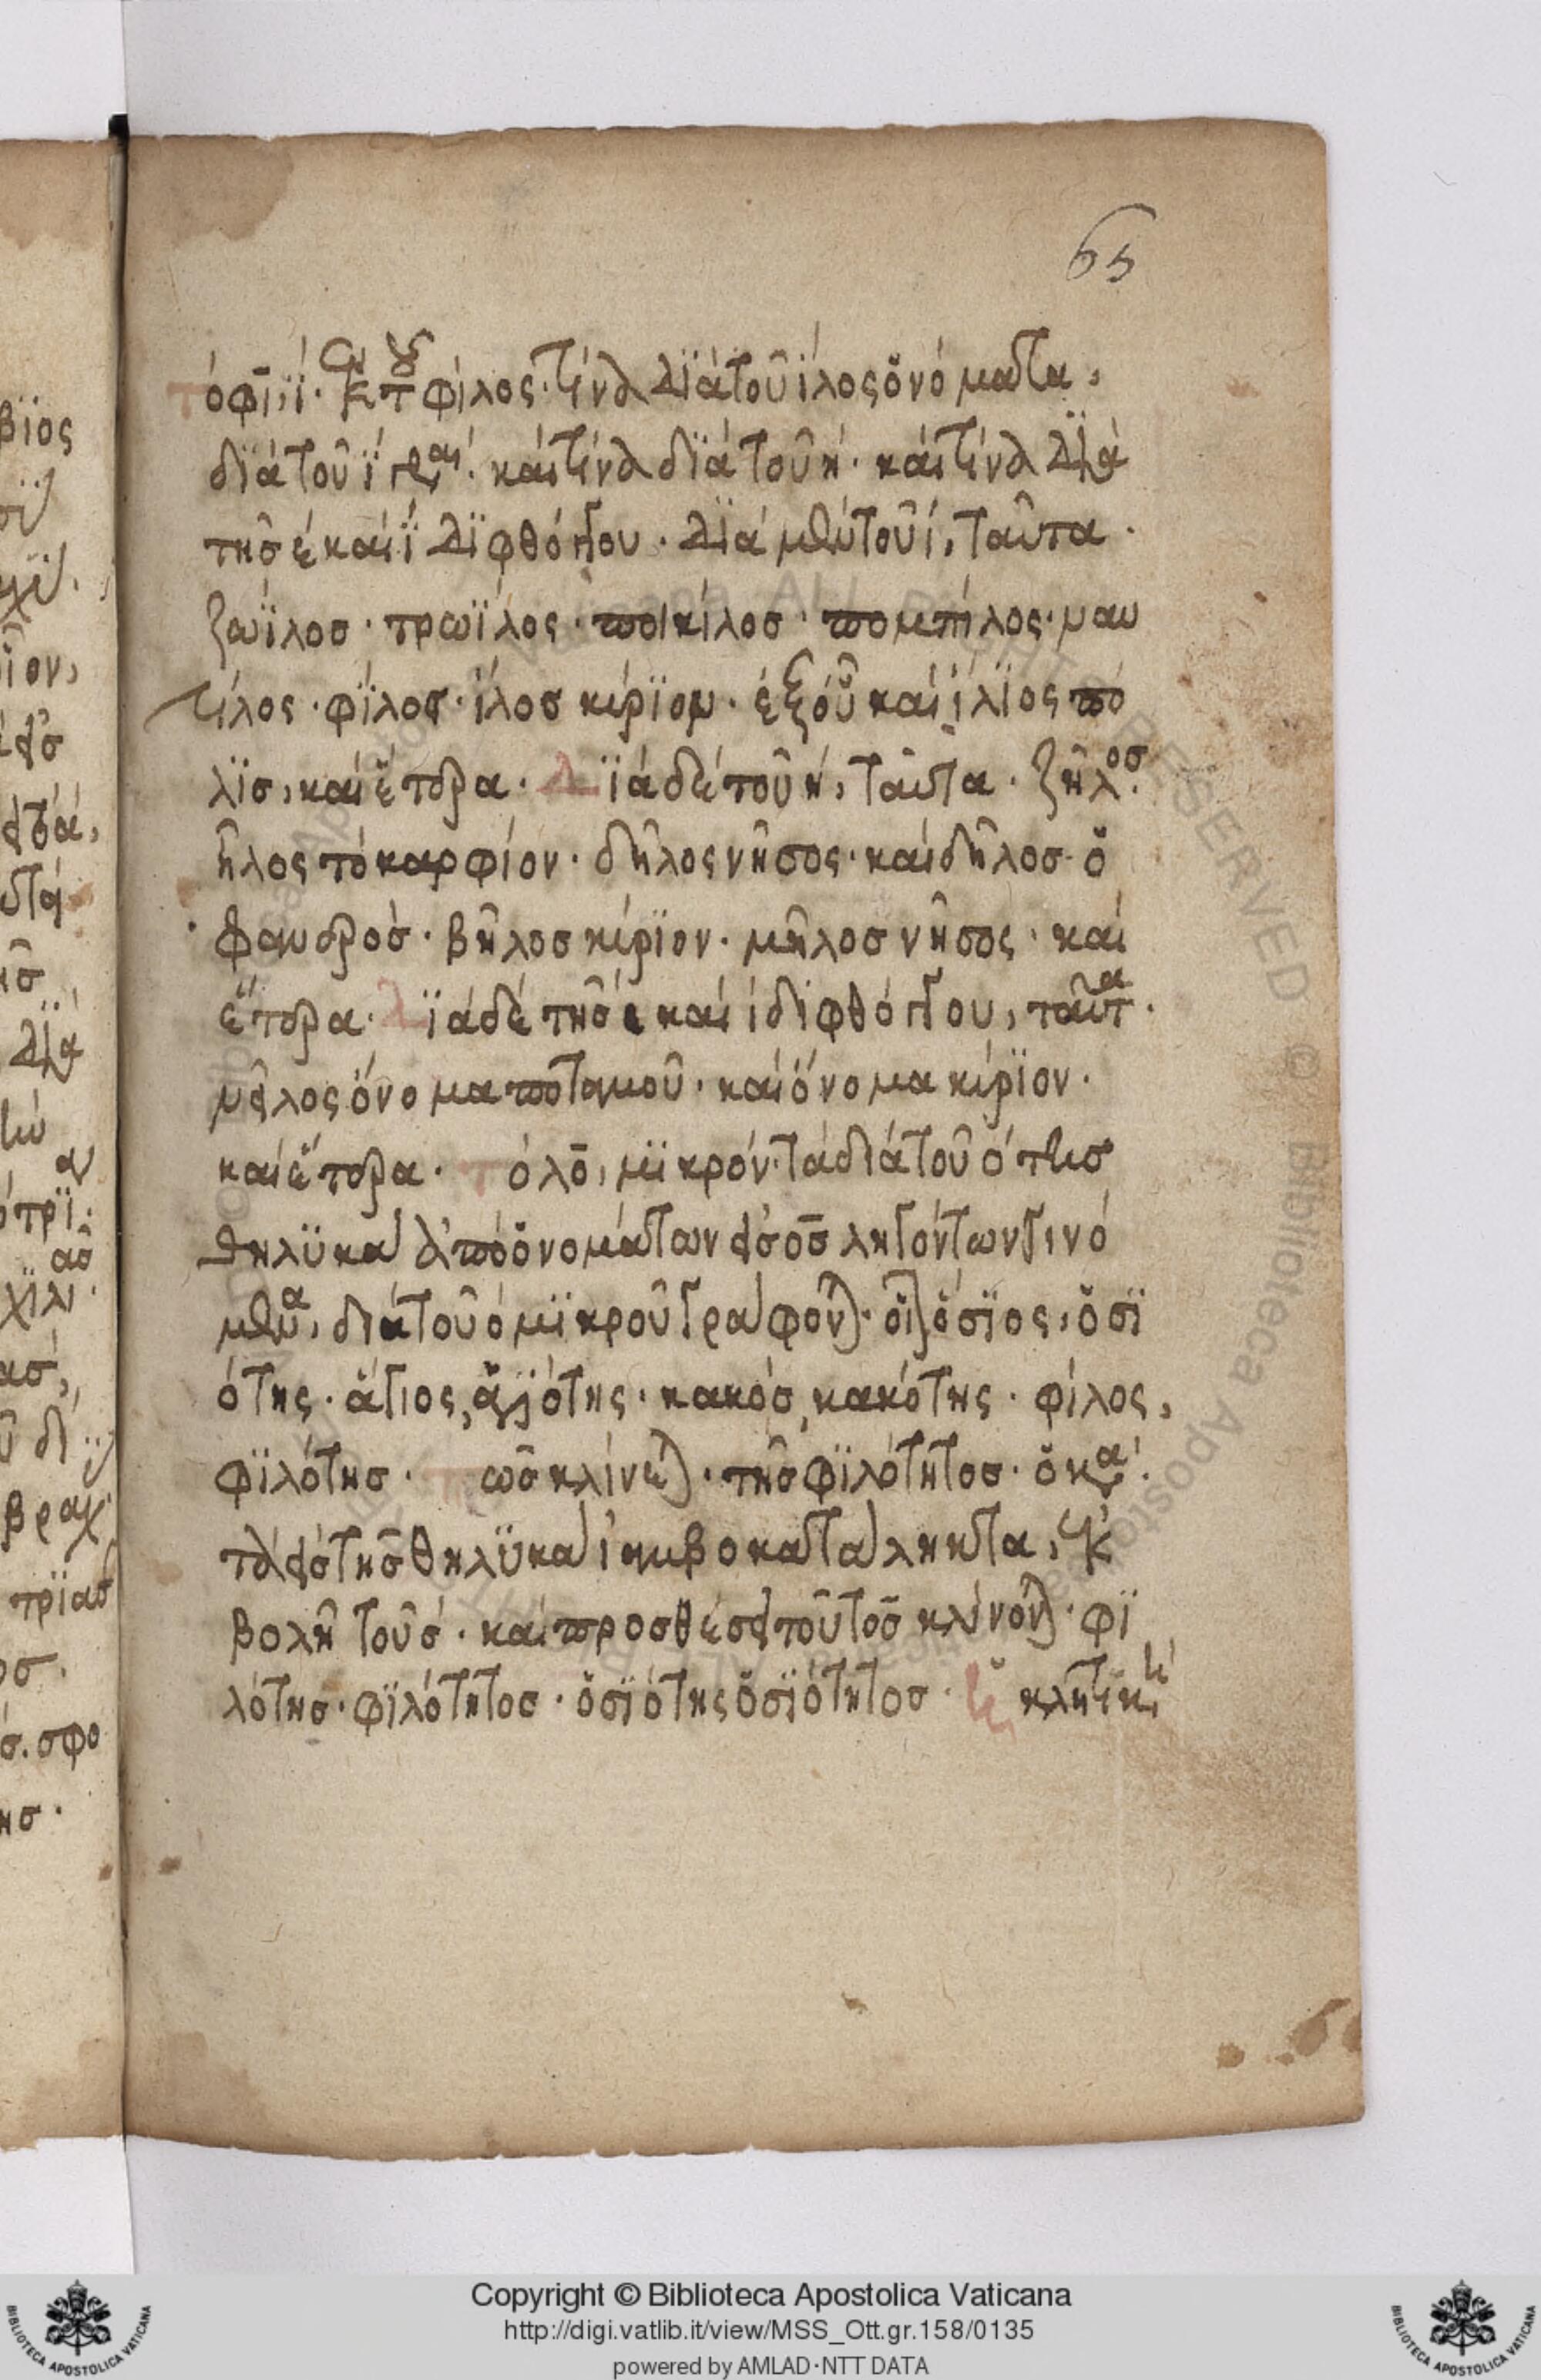 65
τὸ φῑ, ϊ. φίλος· τινὰ διὰ τοῦ ίλος ὀνόματα,
διὰ τοῦ ϊ γρ αι. καὶ τινὰ διὰ τοῦ η· καὶ τινὰ διὰ
τῆσ ε καὶ ϊ διφθόγγου. διὰ μὲν τοῦ ι, ταῦτα.
ζωΐλοσ· τρωΐλος· ποικίλοσ· πομπίλος· ναυ
τίλος· φίλος· ίλοσ κύριον· ἐξ οὗ καὶ ίλιος πό
λισ, καὶ ἕτερα. διὰ δὲ τοῦ η, ταῦτα. ζῆλοσ.
ῆλος τὸ καρφίον· δῆλος νῆσος· καὶ δῆλοσ ὁ
φανερόσ· βῆλοσ κύριον· μῆλοσ νῆσος· καὶ
ἕτερα. διὰ δὲ τῆσ ε καὶ ι διφθόγγου, ταῦτα.
νεῖλος ὄνομα ποταμοῦ· καὶ ὄνομα κύριον.
καὶ ἕτερα. τὸ λο, μικρόν· τὰ διὰ τοῦ ότησ
θηλϋκὰ ἀπὸ ὀνομάτων εἰσ οσ ληγόντων γινό
μενα, διὰ τοῦ ο μικροῦ γράφονται· οἷον ὅσιος, ὁσι
ότης· ἅγιος, ἁγιότης· κακόσ, κακότης· φίλος,
φϊλότησ. πῶσ κλίνεται· τῆσ φϊλότητοσ· ὁ κα.
τὰ εἰσ τησ θηλϋκὰ
βολῆ τοῦ σ· καὶ προσθέσει τοῦ τοσ κλίνονται· φϊ
λότησ· φϊλότητοσ· ὁσϊότης ὁσϊότητοσ.
Copyright © Biblioteca Apostolica Vaticana
http://digi.vatlib.it/view/MSS_Ott.gr.158/0135
powered by AMLAD·NTT DATA